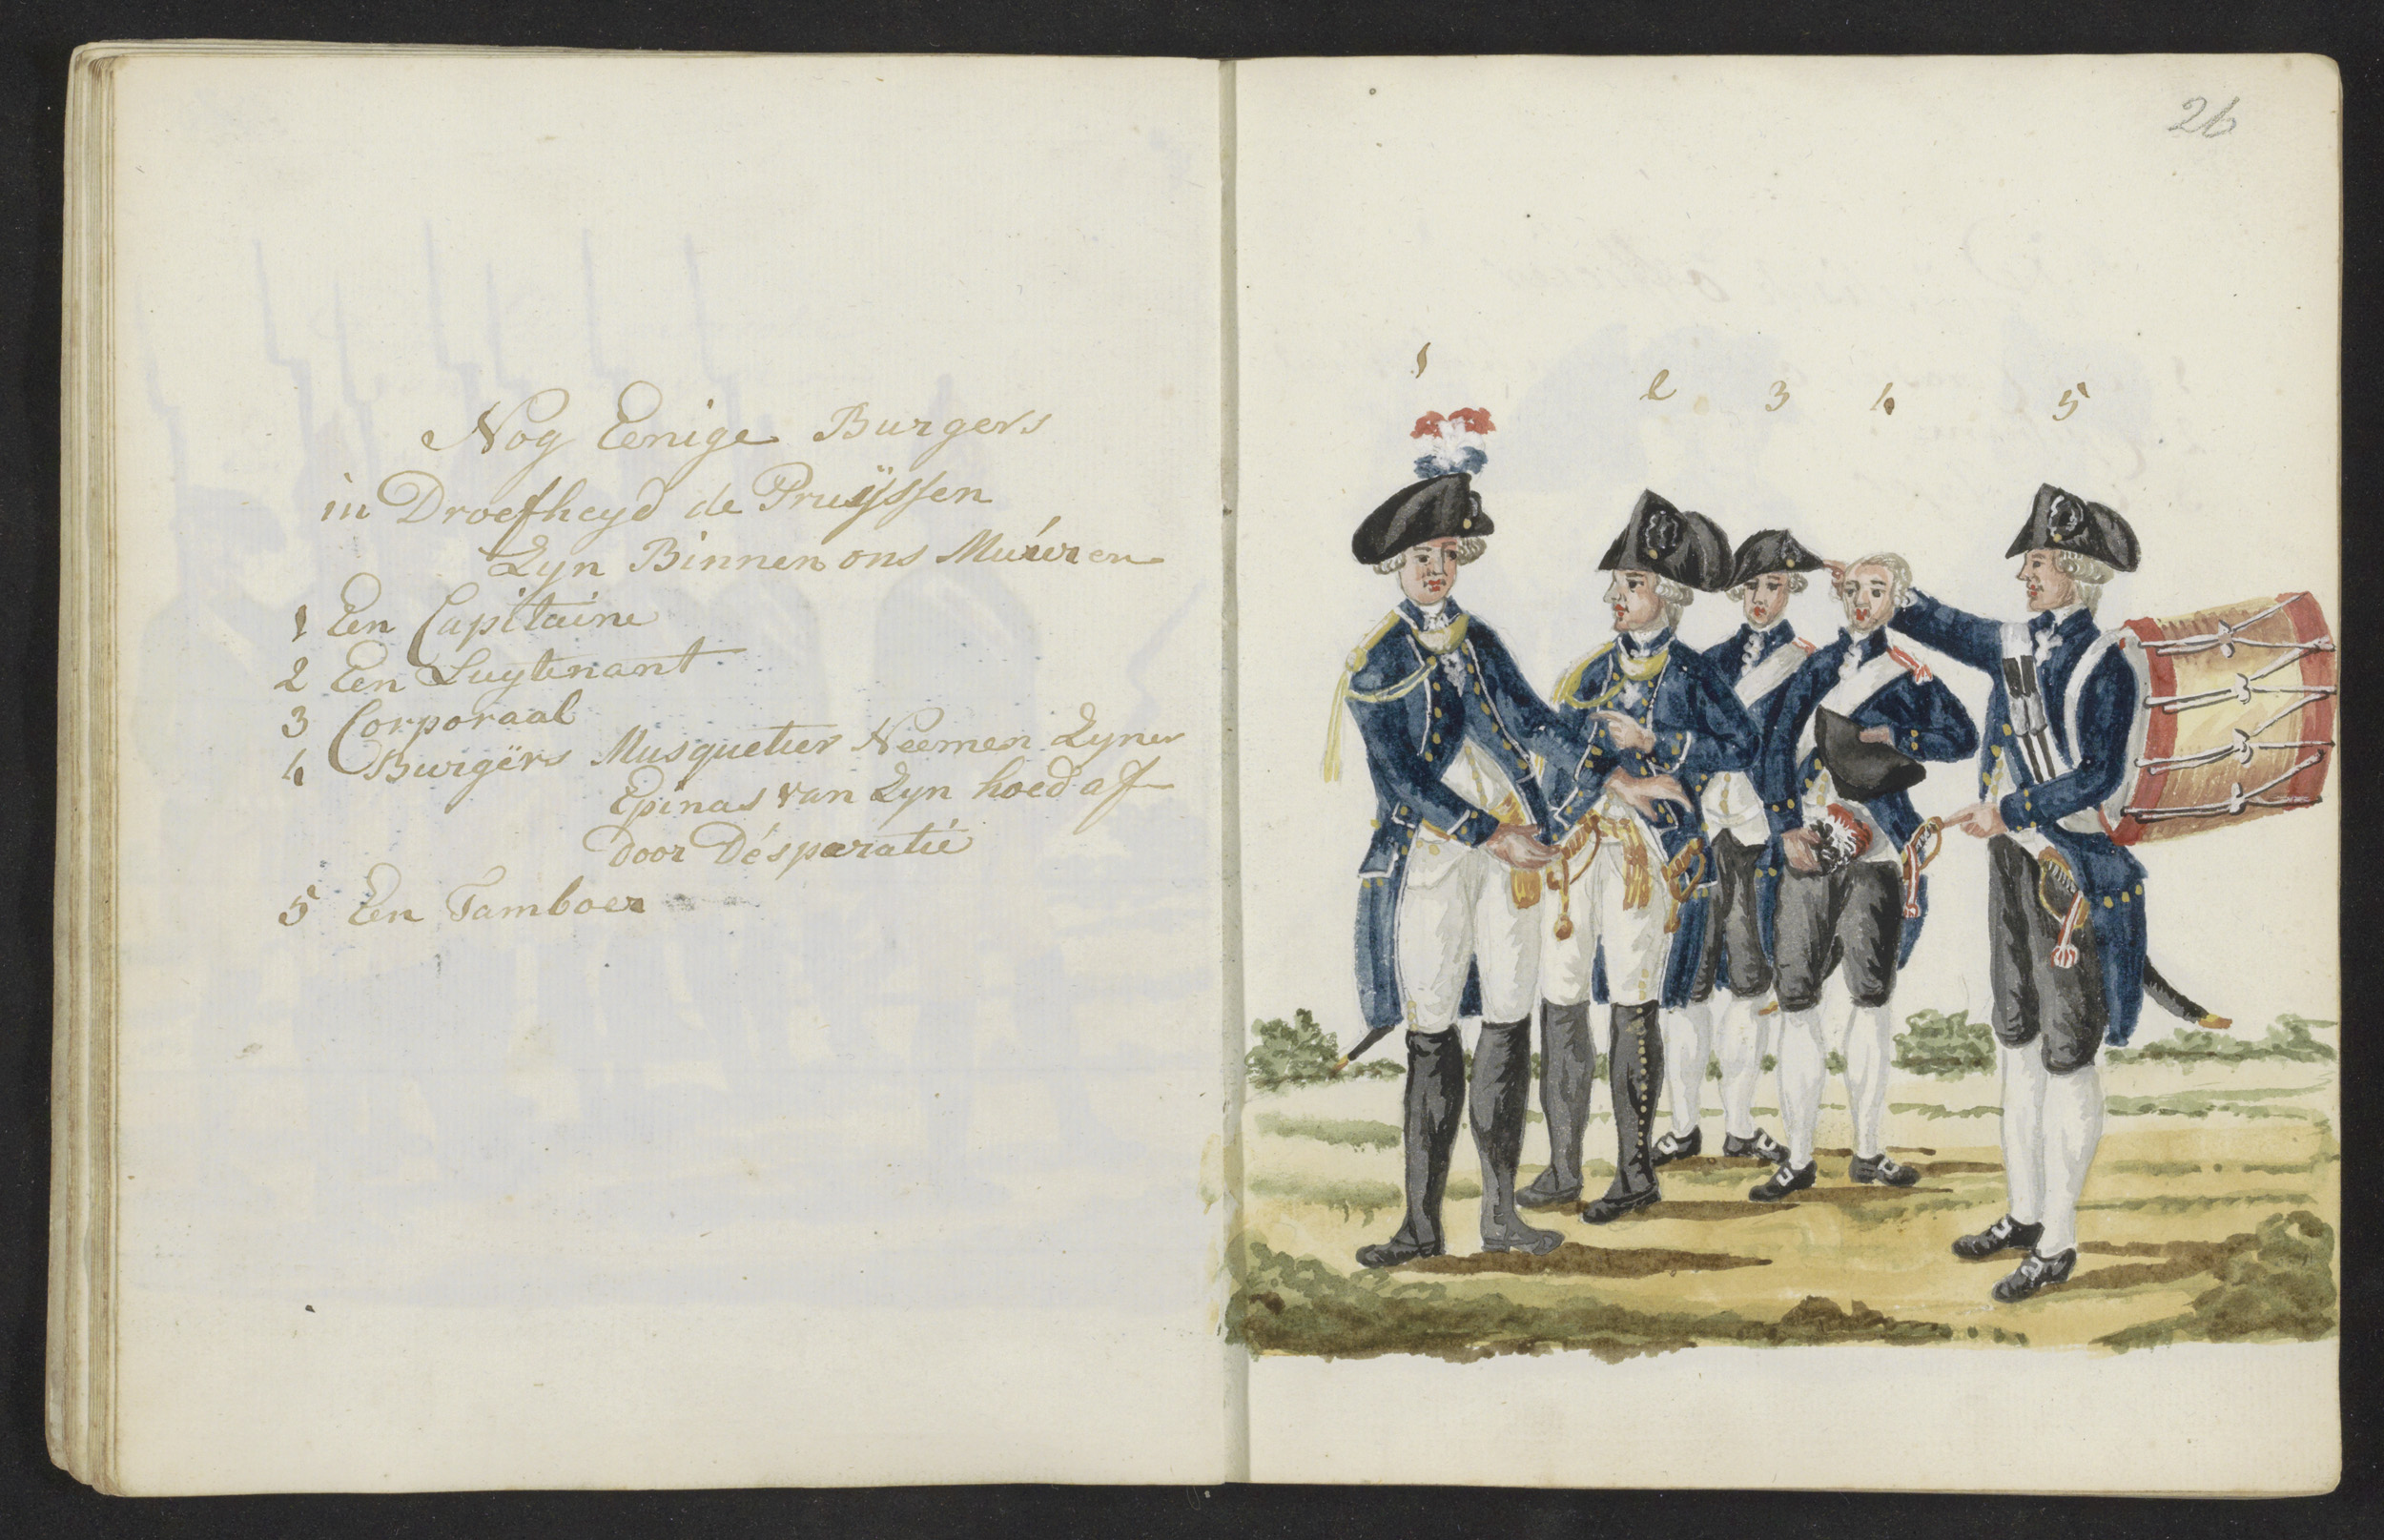 Nog Eenige Burgers
in Droefheyd de Pruÿssen
Zyn Binnen ons Muuren
1 Een Capitaine
2 Een Luytenant
3 Corporaal
4 Burgërs Musquetier Neemen Zyner
Epinas van Zyn hoed af
door Désparatie
5 Een Tamboer
26
1 2 3 4 5